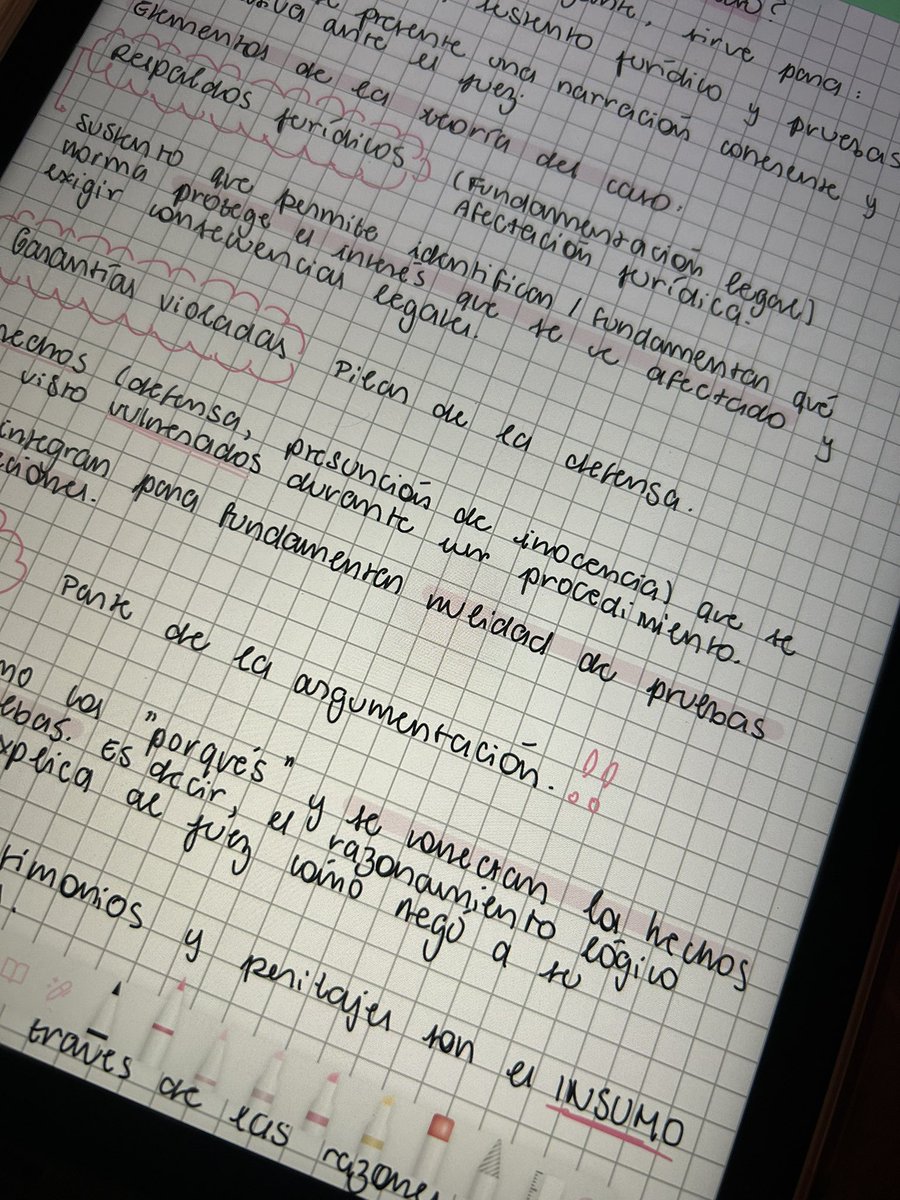 sirve para:
sustento jurídico y pruebas
presente una narración coherente y
ante el juez.
Elementos de la teoría del caso.
Respaldos jurídicos (Fundamentación legal)
Afectación jurídica.
sustento que permite identificar / fundamentar qué
norma protege el interés que se ve afectado y
exigir consecuencias legales.
Garantías violadas Pilar de la defensa.
hechos (defensa, presunción de inocencia) que se
visto vulnerados durante un procedimiento.
integran para fundamentar nulidad de pruebas
Parte de la argumentación. !!
los "porqués" y se conectan la hechos
Es decir, el razonamiento lógico
explica al juez cómo negó a su
y peritajes son el INSUMO
través de las razone